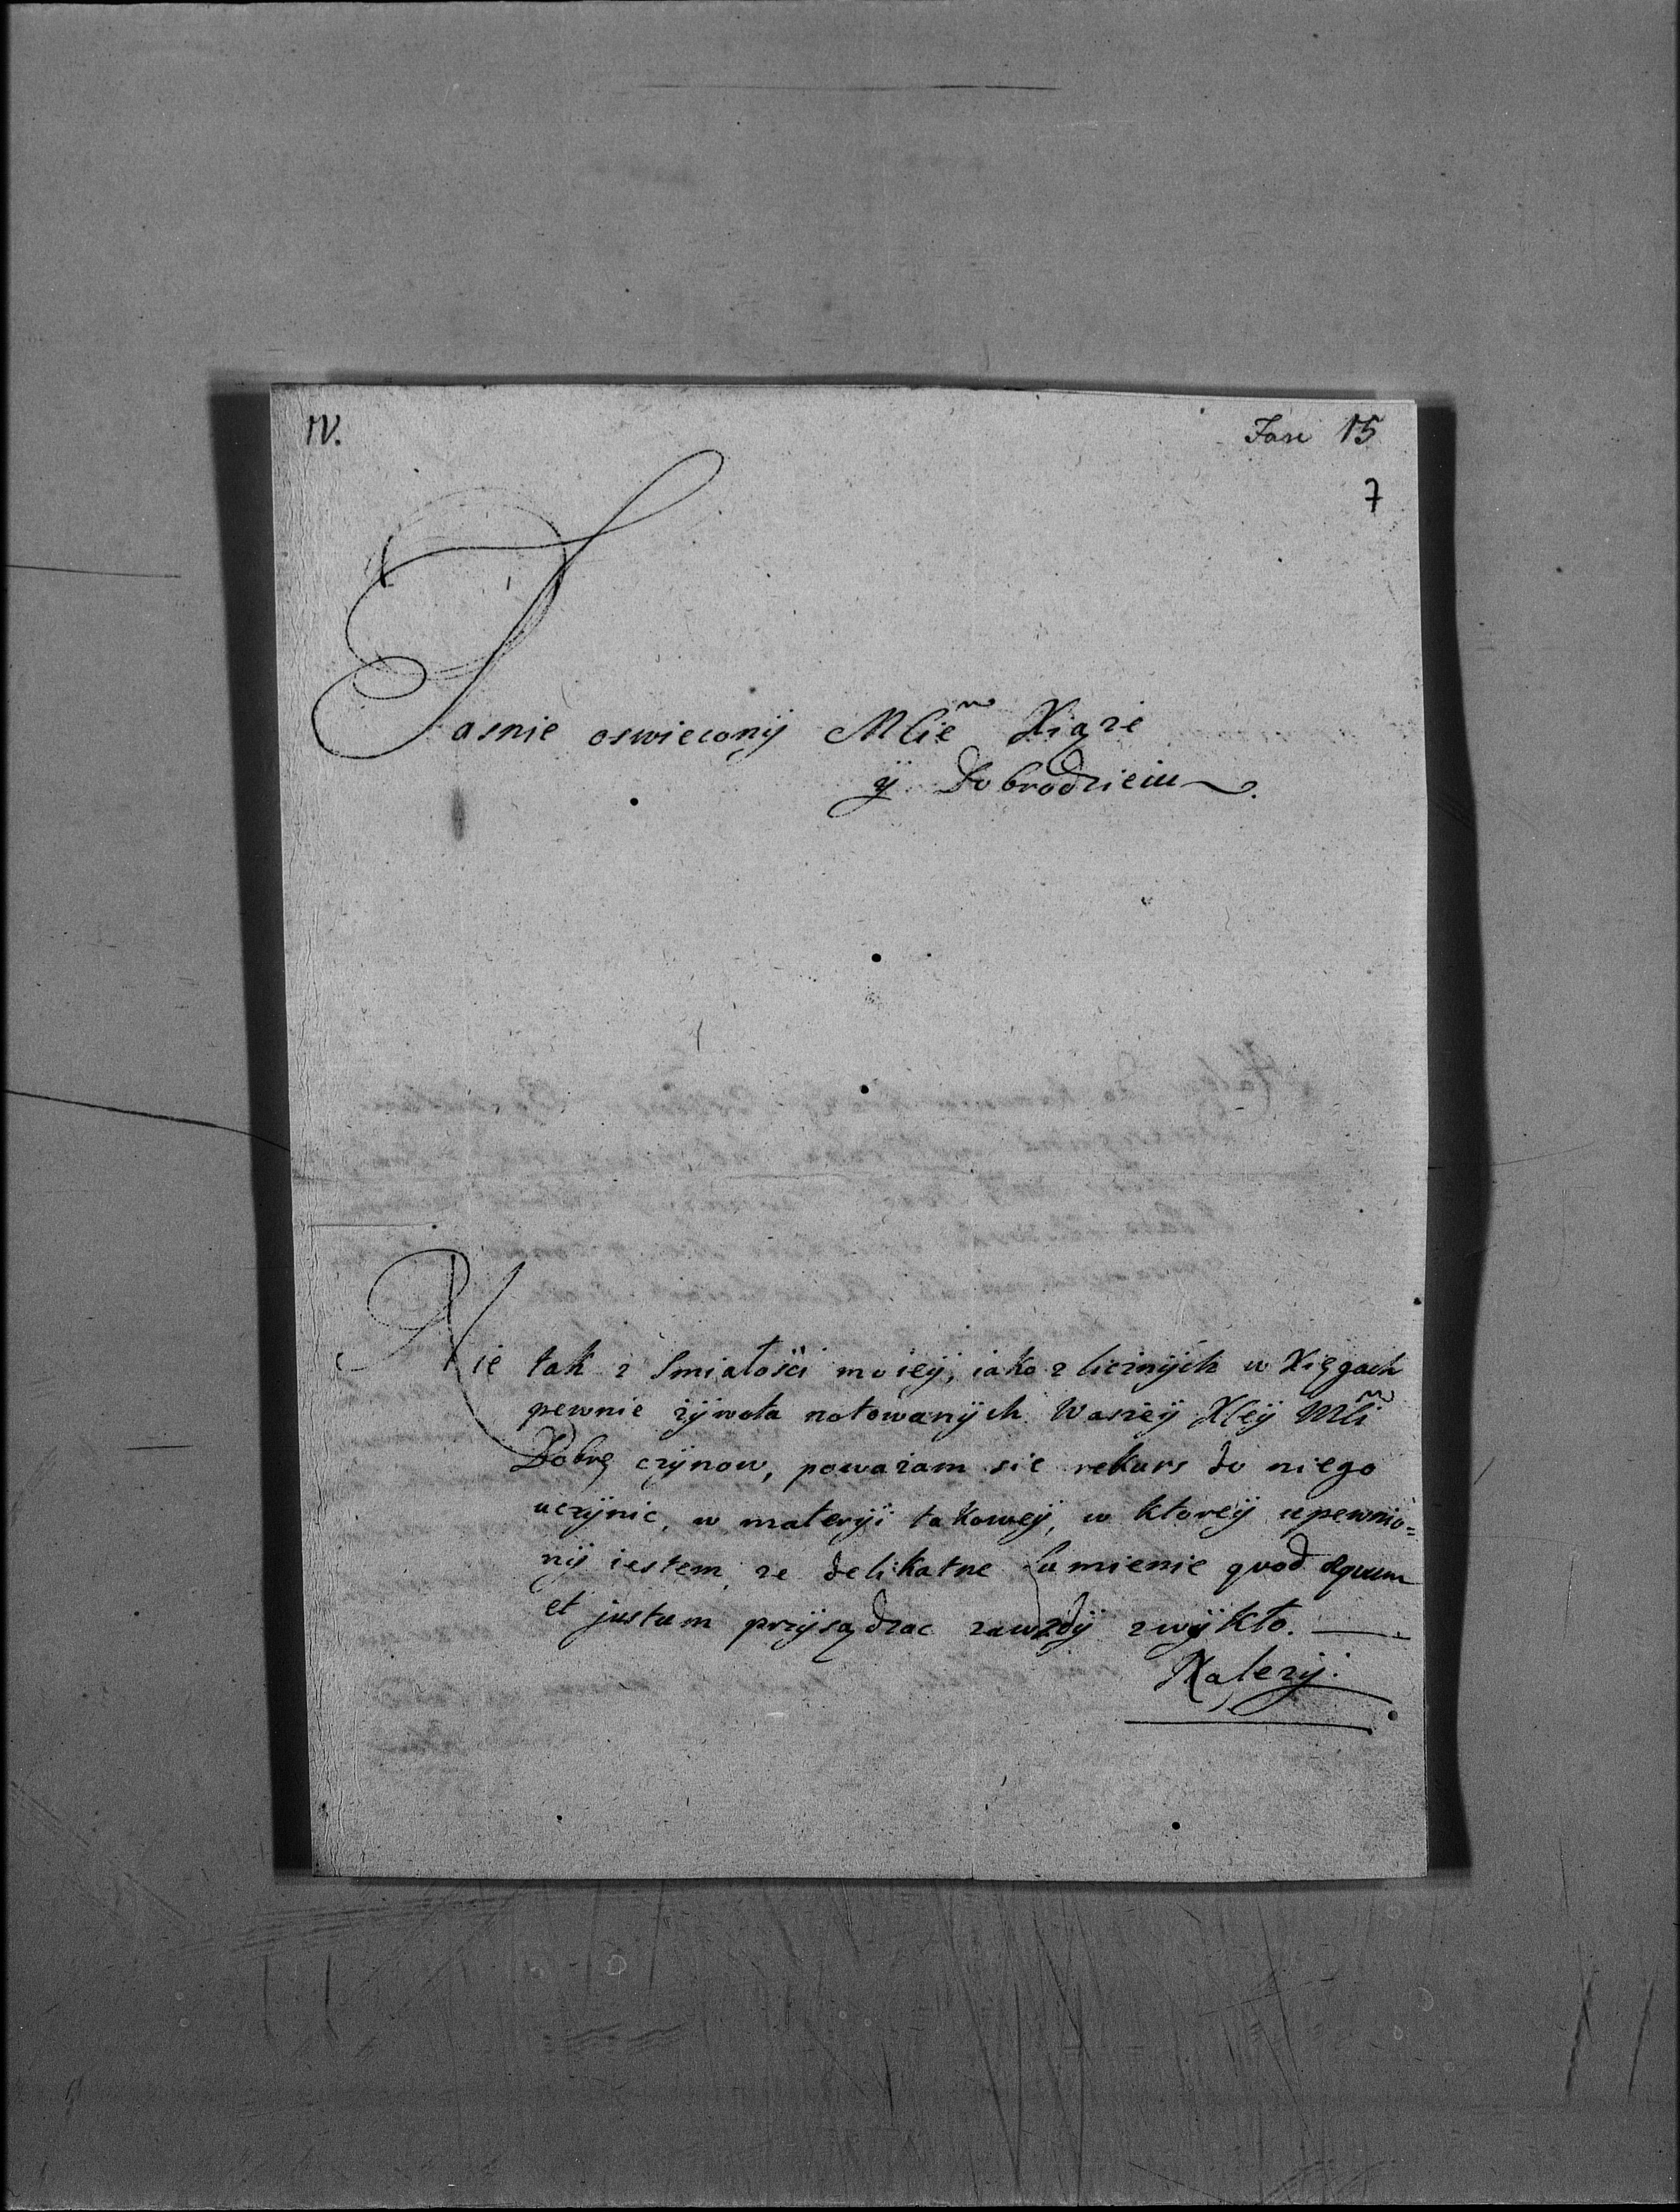 IV.
Fasc 15
7
Jasnie oswieconÿ MCie Xiąze
ÿ Dobrodzieiu
Nie tak z Smiałości moieÿ, iako z licznÿch w Xięgach
pewnie zÿwota notowanÿch Waszeÿ XCeÿ Mci
Dobrę czÿnow, powazam sie rekurs do niego
uczÿnic, w materÿi takoweÿ, w ktoreÿ upewnio=
nÿ iestem, ze delikatne Sumienie quod æquum
et justum przÿsądzac zawzdÿ zwÿkło.
Nalezÿ: